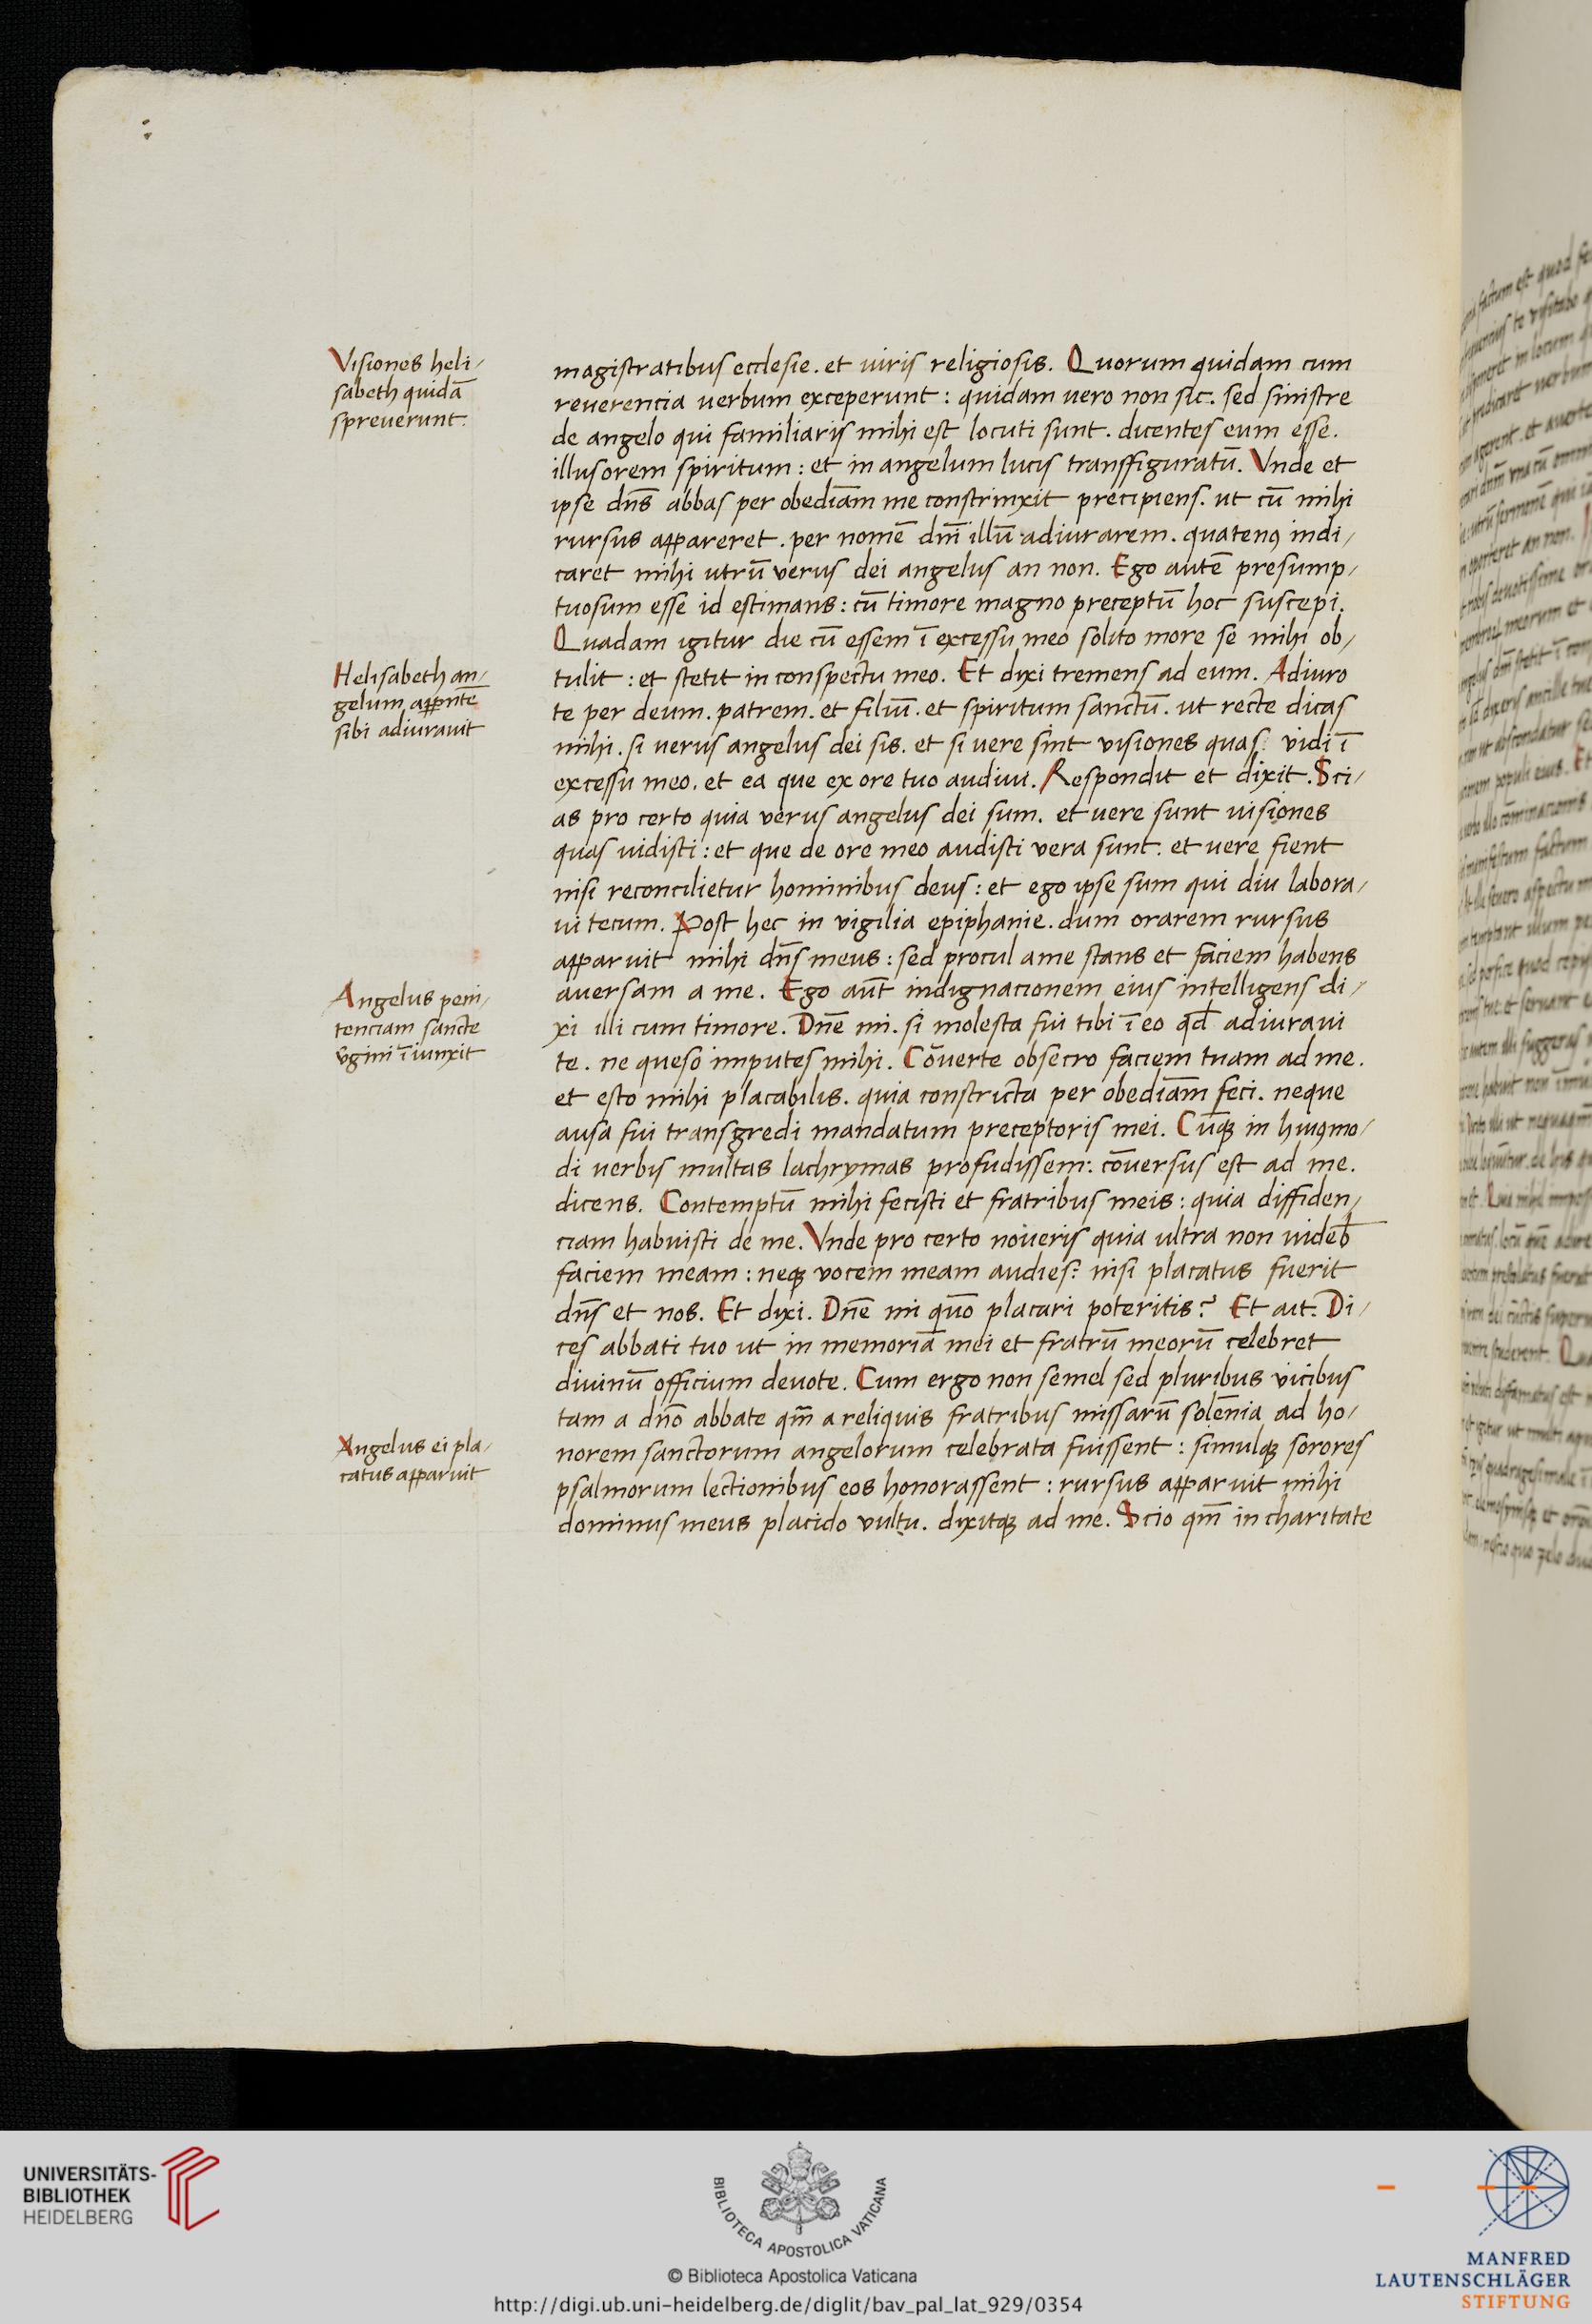 Visiones heli/
sabeth quidā
spreuerunt.
magistratibus ecclesie. et uiris religiosis. Quorum quidam cum
reuerencia uerbum exceperunt : quidam uero non sic. sed sinistre
de angelo qui familiaris mihi est locuti sunt. dicentes eum esse.
illusorem spiritum : et in angelum lucis transffiguratū. Vnde et
ipse dn̄s abbas per obediām me constrinxit precipiens. ut cū mihi
rursus appareret. per nomē dn̄i illū adiurarem. quatenꝰ indi/
caret mihi utrū verus dei angelus an non. Ego autē presump/
tuosum esse id estimans : cū timore magno preceptū hoc suscepi.
Quadam igitur die cū essem ī excessu meo solito more se mihi ob/
Helisabeth an/
gelum appn̄tē
sibi adiurauit
tulit : et stetit in conspectu meo. Et dixi tremens ad eum. Adiuro
te per deum. patrem. et filiū. et spiritum sanctū. ut recte dicas
mihi. si verus angelus dei sis. et si vere sint visiones quas vidi ī
excessu meo. et ea que ex ore tuo audiui. Respondit et dixit. Sci/
as pro certo quia verus angelus dei sum. et uere sunt uisiones
quas uidisti : et que de ore meo audisti vera sunt. et uere fient
nisi reconcilietur hominibus deus : et ego ipse sum qui diu labora/
ui tecum. Post hec in vigilia epiphanie. dum orarem rursus
apparuit mihi dn̄s meus : sed procul ame stans et faciem habens
Angelus peni/
tenciam sancte
v̄gini īiunxit
auersam a me. Ego aut̄ indignacionem eius intelligens di/
xi illi cum timore. Dn̄e mi. si molesta fui tibi ī eo qd̄ adiuraui
te. ne queso imputes mihi. Cōuerte obsecro faciem tuam ad me.
et esto mihi placabilis. quia constricta per obediām feci. neque
ausa fui transgredi mandatum preceptoris mei. Cūqꝫ in huiꝰmo/
di uerbis multas lachrymas profudissem : cōuersus est ad me.
dicens. Contemptū mihi fecisti et fratribus meis : quia diffiden/
ciam habuisti de me. Vnde pro certo noueris quia ultra non uideb̄
faciem meam : neqꝫ vocem meam audies : nisi placatus fuerit
dn̄s et nos. Et dixi. Dn̄e mi quō placari poteritis? Et ait. Di/
ces abbati tuo ut in memoriā mei et fratrū meorū celebret
diuinū officium deuote. Cum ergo non semel sed pluribus vicibus
tam a dn̄o abbate qm̄ a reliquis fratribus missarū solēnia ad ho/
Angelus ei pla/
catus apparuit
norem sanctorum angelorum celebrata fuissent : simulqꝫ sorores
psalmorum lectionibus eos honorassent : rursus apparuit mihi
dominus meus placido vultu. dixitqꝫ ad me. Scio qm̄ in charitate
UNIVERSITÄTS-
BIBLIOTHEK
HEIDELBERG
BIBLIOTECA APOSTOLICA VATICANA
© Biblioteca Apostolica Vaticana
http://digi.ub.uni-heidelberg.de/diglit/bav_pal_lat_929/0354
MANFRED
LAUTENSCHLÄGER
STIFTUNG